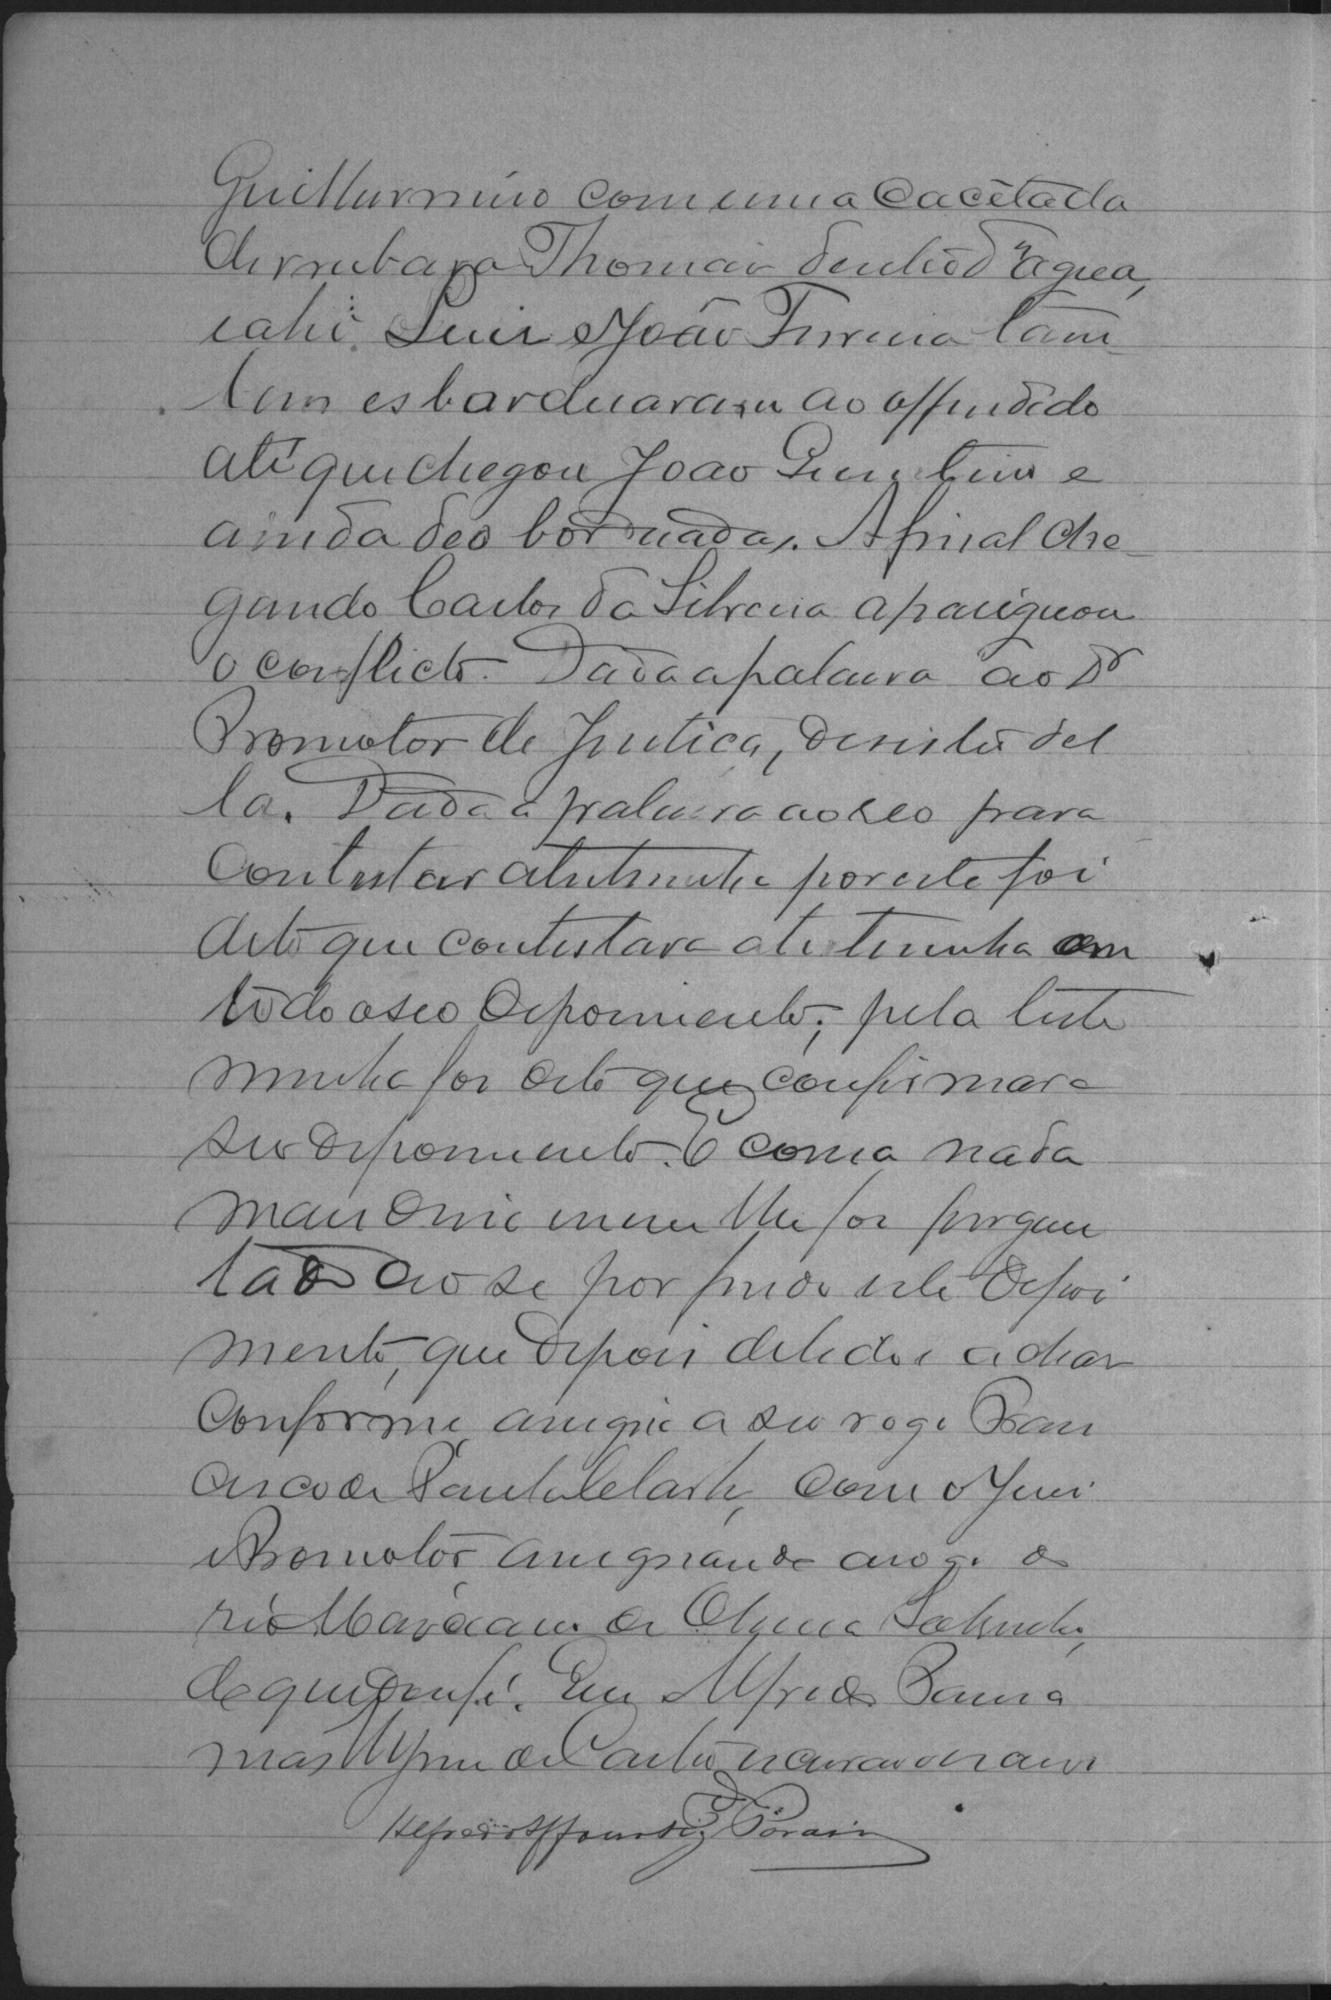 Guilhermino com uma cacêtada
derrubara Thomaz dentro d'agua,
e ahi Luis e João Ferreira tam
bem esbarduaram ao offendido
até que chegou João Quintino e
ainda deo borduadas. Afinal che
gando Carlos da Silveira apasiguou
o conflicto. Dada a palavra ao Dr
Promotor de Justiça, desistio del
la. Dada a palavra ao reo para
contestar a testemunha por este foi
dito que contestava a testemunha em
todo o seo depoimento; pela teste
munha foi dito que confirmava
seu depoimento. E como nada
mais disse nem lhe foi pergun
tado deo se por findo este depoi
mento, que depois de lido e achar
conforme, assigna a seu rogo Fran
cisco de Paula, com o Juiz
e Promotor, assignando a rogo do
réo de
de que dou fé. Eu Alfredo
escrivão o escrevi
Alfredo